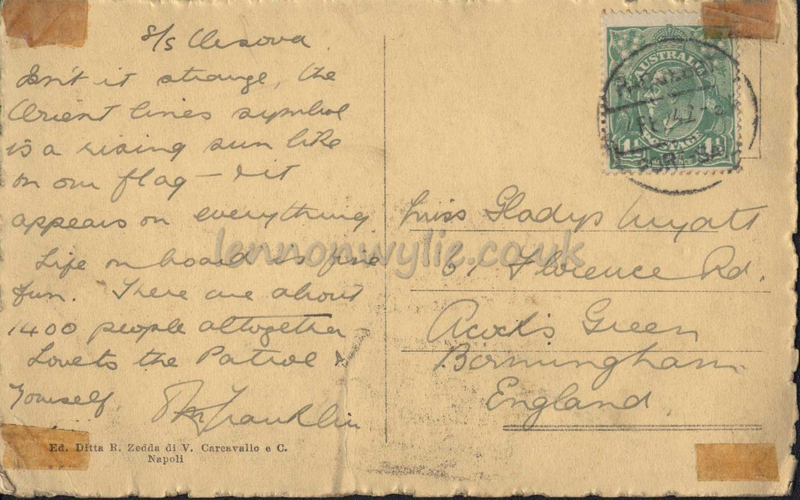 S/S Orsova.
Isn't it strange, the
Orient lines symbol
is a rising sun like
on our flag – & it
appears on everything.
Life on board is fine
fun. There are about
1400 people altogether
Love to the Patrol &
Yourself.
Franklin
Ed. Ditta R. Zedda di V. Carcavallo e C.
Napoli
AUSTRALIA
POSTAGE
Miss Gladys Wyatt
61 Florence Rd.
Acock's Green
Birmingham.
England.
lennonwylie.co.uk